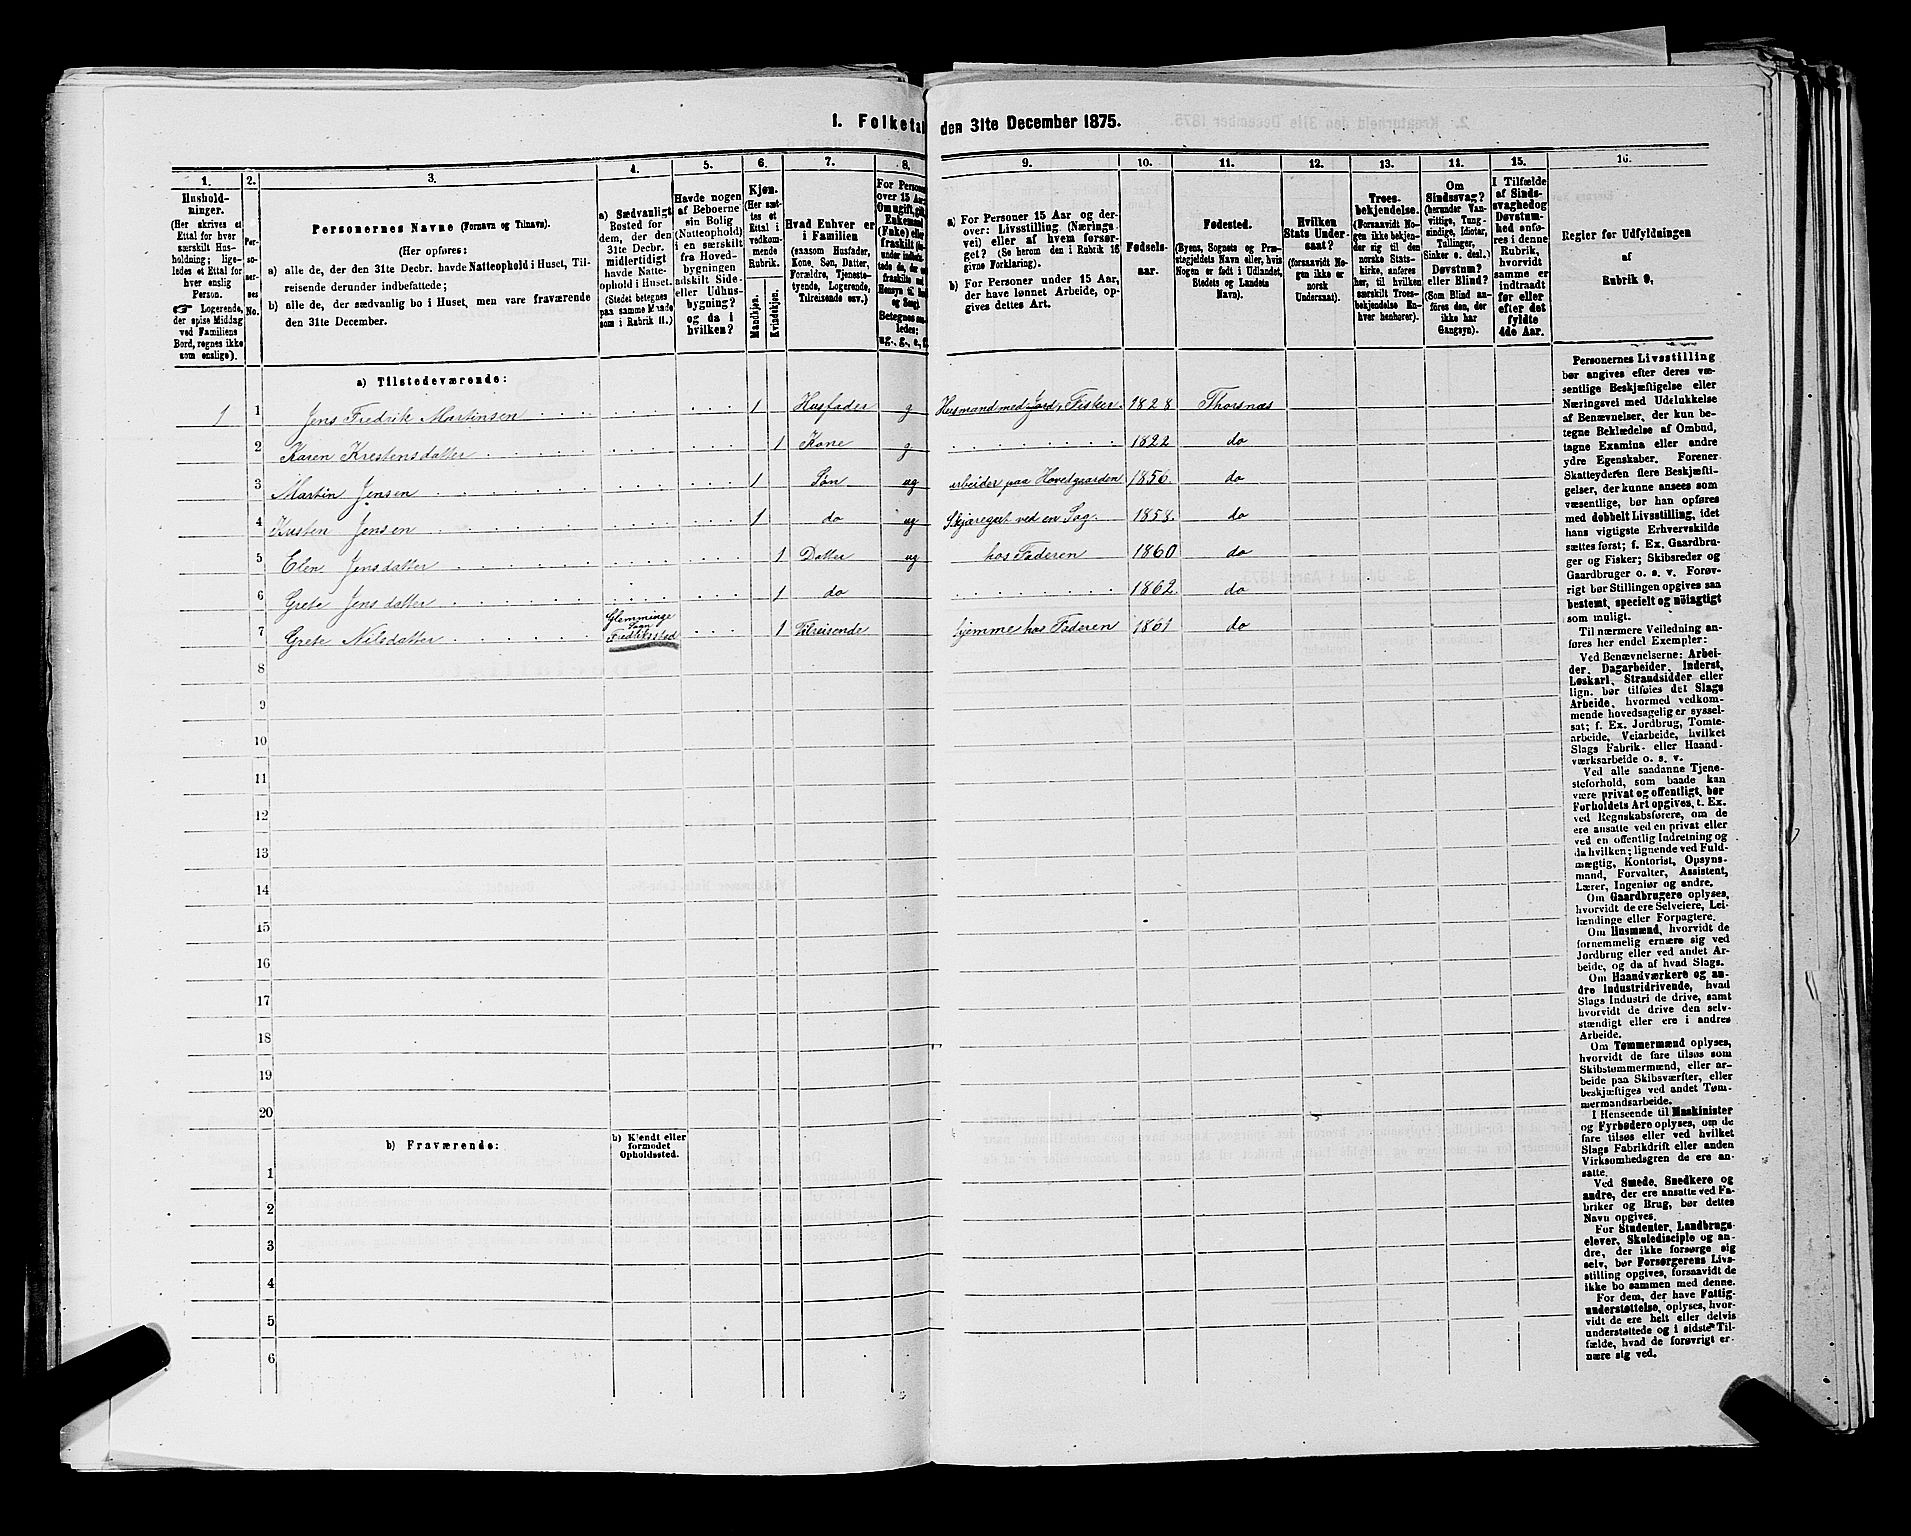 1. Folketal den 31te December 1875.
1.
2.
3.
4.
5.
6.
7.
8.
9.
10.
11.
12.
13.
14.
15.
16.
Hushold-
ninger.
(Her skrives et
Ettal for hver
særskilt Hus-
holdning; lige-
ledes et Ettal for
hver enslig
Person.
☞ Logerende,
der spise Middag
ved Familiens
Bord, regnes ikke
som enslige).
Per-
so-
ner-
nes
No.
Personernes Navne (Fornavn og Tilnavn).
(Her opføres:
a) alle de, der den 31te Decbr. havde Natteophold i Huset, Til-
reisende derunder indbefattede;
b) alle de, der sædvanlig bo i Huset, men vare fraværende
den 31te December.
a) Sædvanligt
Bosted for
dem, der den
31te Decbr.
midlertidigt
havde Natte-
ophold i Huset.
(Stedet betegnes
paa samme Maade
som i Rubrik 11.)
Havde nogen
af Beboerne
sin Bolig
(Natteophold)
i en særskilt
fra Hoved-
bygningen
adskilt Side-
eller Udhus-
bygning?
og da i
hvilken?
Kjøn.
(Her sæt-
tes et
Ettal i
vedkom-
mende
Rubrik.
Mandkjøn.
Kvindekjøn.
Hvad Enhver er
i Familien
(saasom Husfader,
Kone, Søn, Datter,
Forældre, Tjeneste-
tyende, Logerende,
Tilreisende osv.)
For Person
over 15 Aar:
Om ugift, gift,
Enkemand
(Enke) eller
fraskilt
Betegnes saa-
ledes:
ug., g., e., f.
a) For Personer 15 Aar og der-
over: Livsstilling (Nærings-
vei) eller af hvem forsør-
get? (Se herom den i Rubrik 16
givne Forklaring).
b) For Personer under 15 Aar,
der have lønnet Arbeide, op-
gives dettes Art.
Fødsels-
aar.
Fødested.
(Byens, Sognets og Præ-
stegjeldets Navn eller, hvis
Nogen er født i Udlandet,
Stedets og Landets
Navn).
Hvilken
Stats Under-
saat?
(forsaavidt No-
gen ikke er
norsk
Undersaat).
Troes-
bekjendelse.
(Forsaavidt No-
gen ikke bekjen-
der sig til den
norske Stats-
kirke, anføres
her, til hvilken
særskilt Troes-
bekjendelse En-
hver henhører).
Om
Sindssvag?
(herunder Van-
vittige, Tung-
sindige, Idioter,
Tullinger,
Sinker o. desl.)
Døvstum?
eller Blind?
(Som Blind an-
føres den, der
ikke har
Gangsyn).
I Tilfælde
af Sinds-
svaghed og
Døvstum-
hed anfø-
res i denne
Rubrik,
hvorvidt
samme er
indtraadt
før eller
efter det
fyldte
4de Aar.
Regler for Udfyldningen
af
Rubrik 9.
a) Tilstedeværende:
1 1 Jens Fredrik Martinsen 1 Husfader g Husmand med Jord, Fisker. 1828 Thorsnæs
2 Karen Krestensdatter 1 Kone g 1822 do
3 Martin Jensen 1 Søn ug arbeider paa Hovedgaarden 1856 do
4 Kristen Jensen 1 do ug Skjæregut ved en Sag. 1858 do
5 Elen Jensdatter 1 Datter ug hos Faderen 1860 do
6 Grete Jensdatter 1 do 1862 do
7 Grete Nilsdatter Glemminge Sogn Fredriksstad 1 Tilreisende hjemme hos Faderen 1861 do
8
9
10
11
12
13
14
15
16
17
18
19
20
b) Fraværende:
b) Kjendt eller
formodet
Opholdssted.
1
2
3
4
5
6
Personernes Livsstilling
bør angives efter deres væ-
sentlige Beskjæftigelse eller
Næringsvei med Udelukkelse
af Benævnelser, der kun be-
tegne Beklædelse af Ombud,
tagne Examina eller andre
ydre Egenskaber. Forener
Skatteyderen flere Beskjæfti-
gelser, der kunne ansees som
væsentlige, bør han opføres
med dobbelt Livsstilling, idet
hans vigtigste Erhvervskilde
sættes først; f. Ex. Gaardbru-
ger og Fisker; Skibsreder og
Gaardbruger o. s. v. Forøv-
rigt bør Stillingen opgives saa
bestemt, specielt og nøiagtigt
som muligt.
Til nærmere Veiledning an-
føres her endel Exempler:
Ved Benævnelserne: Arbei-
der, Dagarbeider, Inderst,
Løskarl, Strandsidder eller
lign. bør tilføies det Slags
Arbeide, hvormed vedkom-
mende hovedsagelig er syssel-
sat; f. Ex. Jordbrug, Tomte-
arbeide, Veiarbeide, hvilket
Slags Fabrik- eller Haand-
værksarbeide o. s. v.
Ved alle saadanne Tjene-
steforhold, som baade kan
være privat og offentligt, bør
Forholdets Art opgives, t. Ex.
ved Regnskabsførere, om de
ere ansatte ved en privat eller
ved en offentlig Indretning og
da hvilken; lignende ved Fuld-
mægtig, Kontorist, Opsyns-
mand, Forvalter, Assistent,
Lærer, Ingeniør og andre.
Om Gaardbrugere oplyses,
hvorvidt de ere Selveiere, Lei-
lændinge eller Forpagtere.
Om Husmænd, hvorvidt de
fornemmelig ernære sig ved
Jordbrug eller ved andet Ar-
beide, og da af hvad Slags.
Om Haandværkere og an-
dre Industridrivende, hvad
Slags Industri de drive, samt
hvorvidt de drive den selv-
stændigt eller ere i andres
Arbeide.
Om Tømmermænd oplyses,
hvorvidt de fare tilsøs som
Skibstømmermænd, eller ar-
beide paa Skibsværfter, eller
beskjæftiges ved andet Tøm-
mermandsarbeide.
I Henseende til Maskinister
og Fyrbødere oplyses, om de
fare tilsøs eller ved hvilket
Slags Fabrikdrift eller anden
Virksomhedsgren de ere an-
satte.
Ved Smede, Snedkere og
andre, der ere ansatte ved Fa-
briker og Brug, bør dettes
Navn opgives.
For Studenter, Landbrugs-
elever, Skoledisciple og an-
dre, der ikke forsørge sig
selv, bør Forsørgerens Livs-
stilling opgives, forsaavidt de
ikke bo sammen med denne.
For dem, der have Fattig-
understøttelse, oplyses, hvor-
vidt de ere helt eller delvis
understøttede og i sidste Til-
fælde, hvad de forøvrigt er-
nære sig ved.